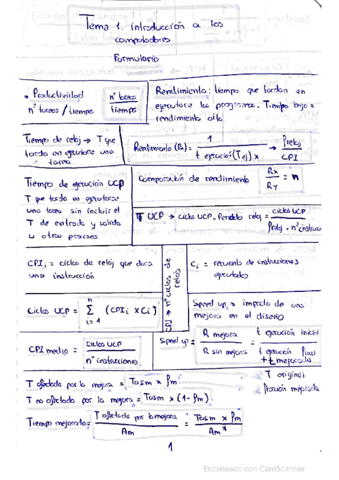 Tema 1. introducción a los
computadores
Formulario
• Productividad
nº tareas / tiempo
nº tareas
tiempo
Rendimiento: tiempo que tardan en
ejecutarse los programas. Tiempo bajo =
rendimiento alto.
Tiempo de reloj → T que
tarda en ejecutarse una
tarea
Rendimiento (Rx) = 1 / t ejecución (Tej) x → freloj / CPI
Tiempo de ejecución UCP
T que tarda en ejecutarse
una tarea sin incluir el
T de entrada y salida
u otros procesos
Comparación de rendimiento Rx / Ry = n
T UCP → ciclos UCP · Periodo reloj = ciclos UCP
CPIi = ciclos de reloj que dura
una instrucción
CPI → nº ciclos de
reloj
Ci = recuento de instrucciones
ejecutadas
Ciclos UCP = n Σ i=1 (CPIi x Ci)
Speed up, = impacto de una
mejora en el diseño
CPI medio = Ciclos UCP / nº instrucciones
Speed up = R mejora / R sin mejora = t ejecución inicial / t ejecución final
T original
T afectado por la mejora = Tasm x fm
T no afectado por la mejora = Tasm x (1 - fm)
Tiempo mejorado = T afectado por la mejora / Am = Tasm x fm / Am
1
Escaneado con CamScanner